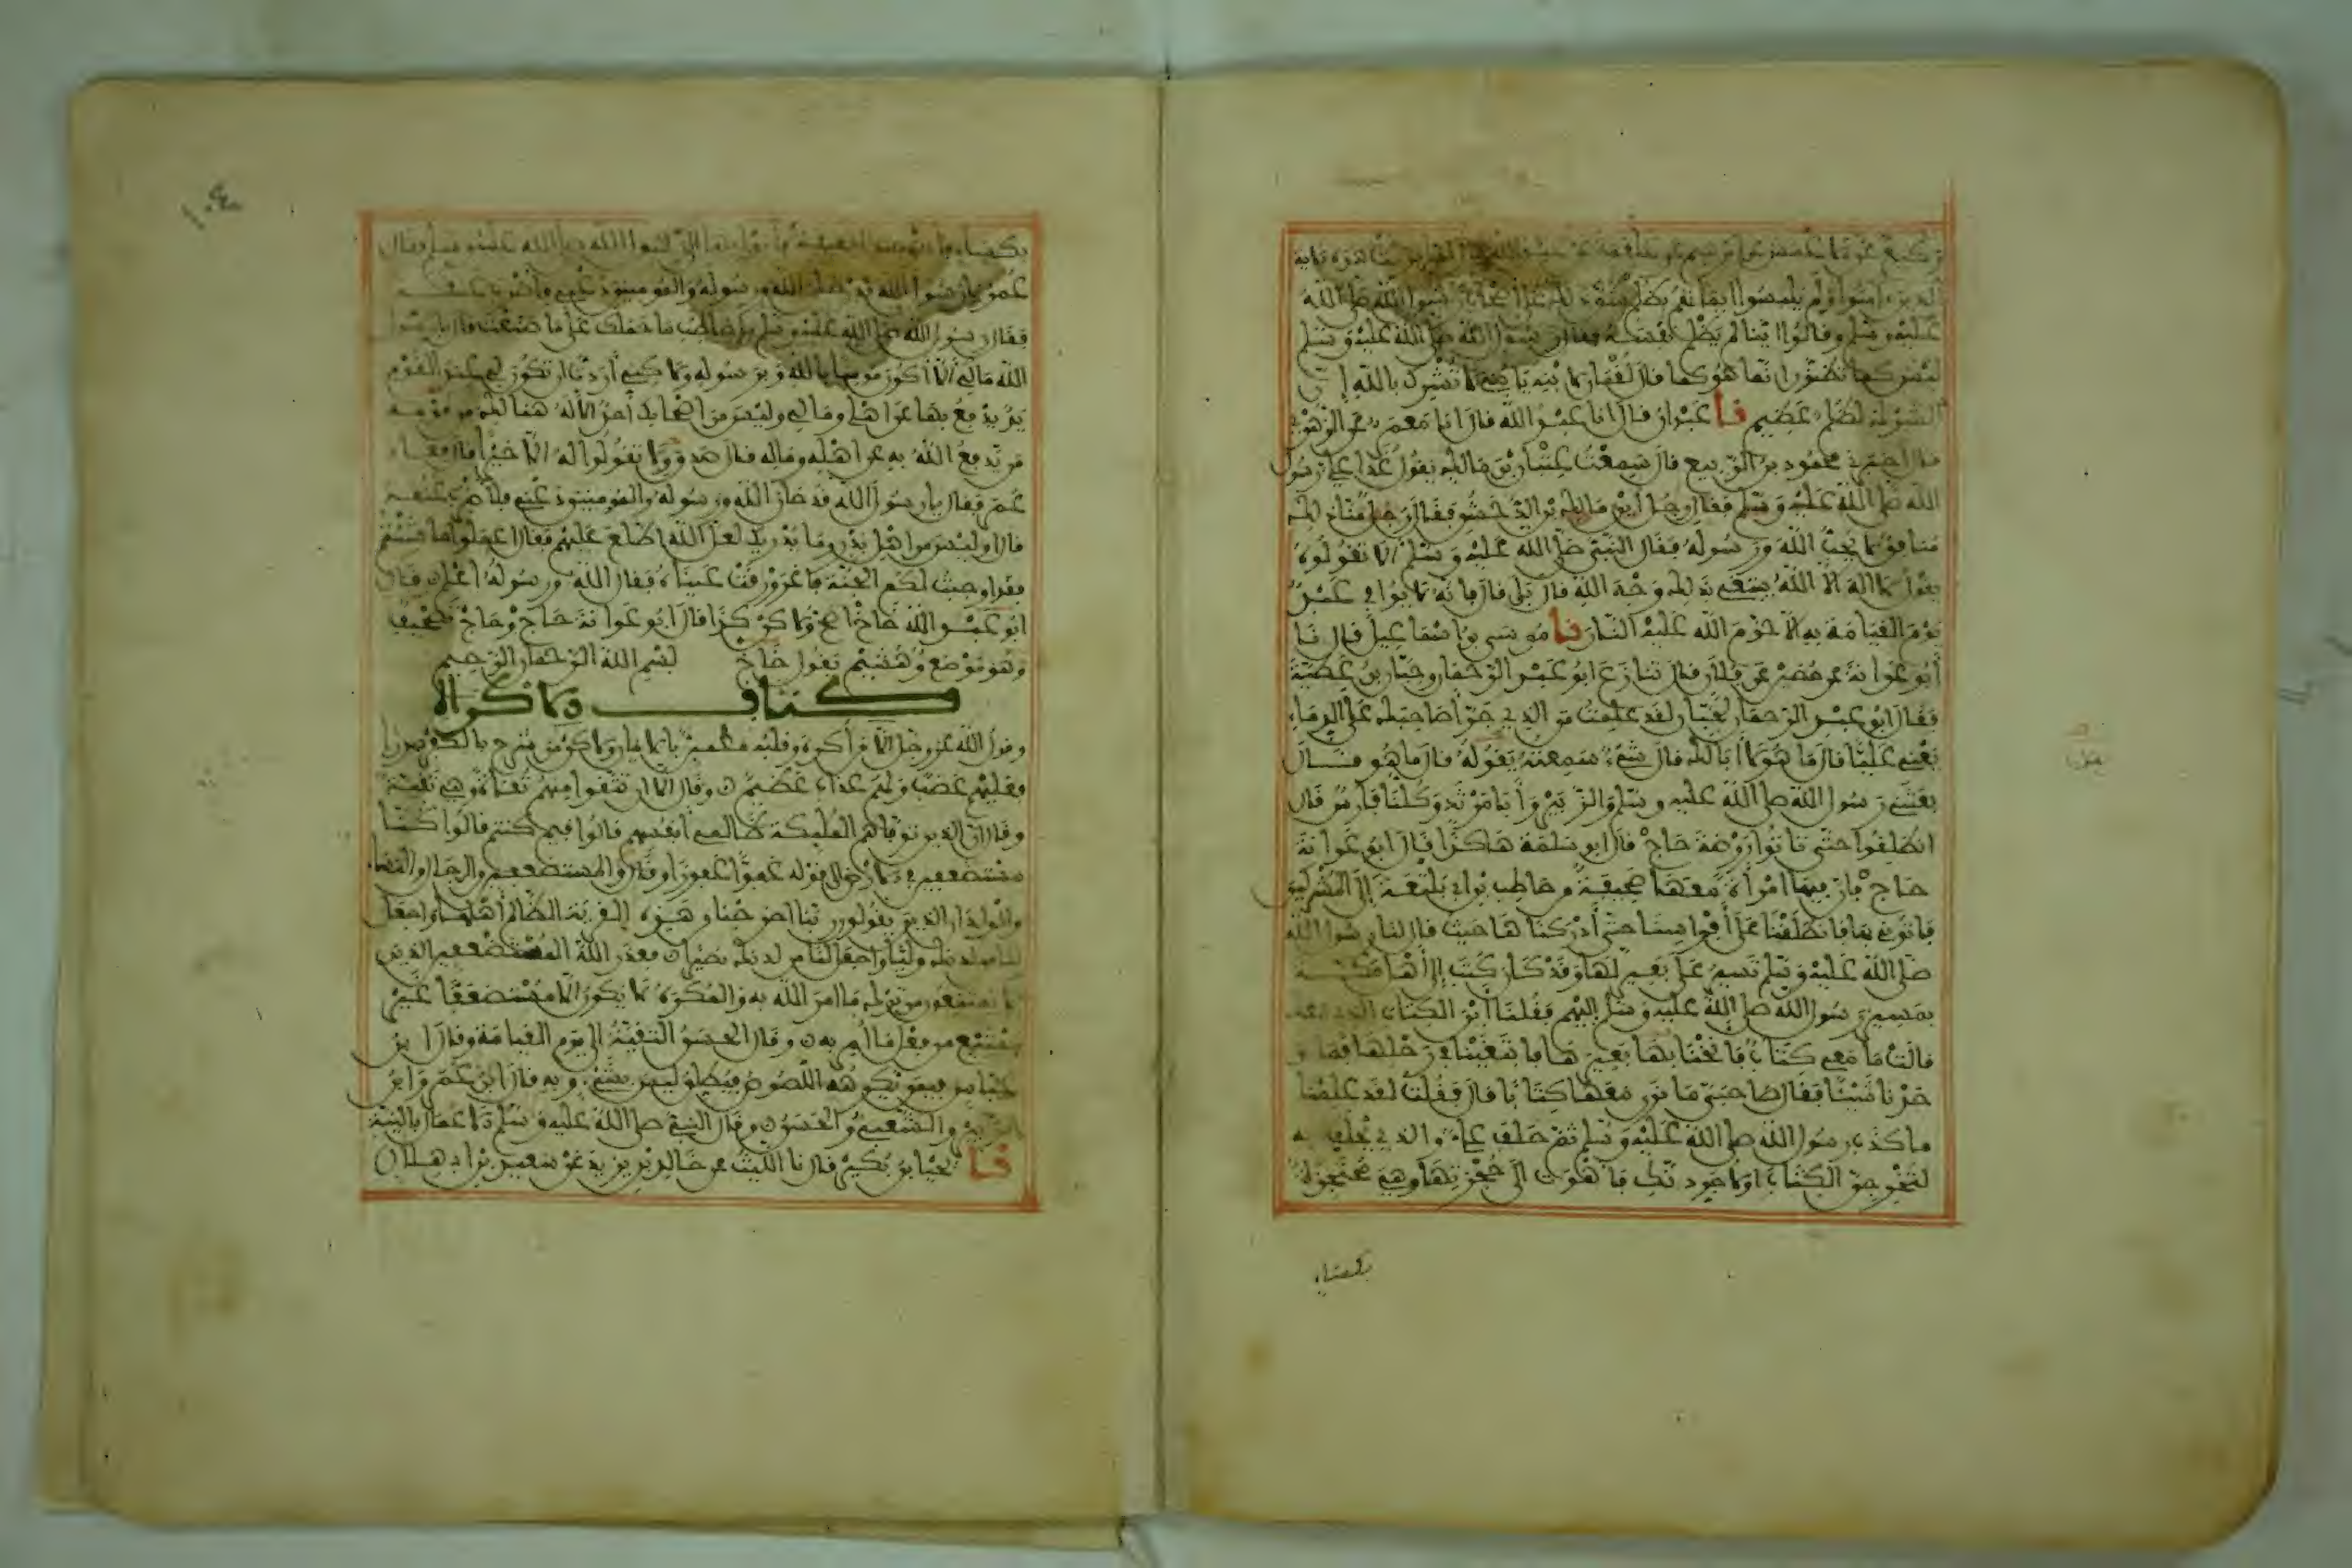 الذين ءامنوا ولم يلبسوا إيمانهم بظلم شق ذلك على أصحاب رسول الله صلى الله
عليه وسلم وقالوا أينا لم يظلم نفسه فقال رسول الله صلى الله عليه وسلم
ليس كما تظنون إنما هو كما قال لقمان لابنه يا بني لا تشرك بالله إن
الشرك لظلم عظيم نا عبدان قال انا عبد الله قال انا معمر عن الزهري
قال اخبرني محمود بن الربيع قال سمعت عتبان بن مالك يقول غدا علي رسول
الله صلى الله عليه وسلم فقال رجل أين مالك بن الدخشن فقال رجل منا ذلك
منافق لا يحب الله ورسوله فقال النبي صلى الله عليه وسلم ألا تقولوه
يقول لا اله الا الله يبتغي بذلك وجه الله قال بلى قال فإنه لا يوافي عبد
يوم القيامة به إلا حرم الله عليه النار نا موسى بن اسماعيل قال نا
أبو عوانة عن حصين عن فلان قال تنازع ابو عبد الرحمان وحبان بن عطية
فقال ابو عبد الرحمان لحبان لقد علمت من الذي جرأ صاحبك على الدماء
يعني عليا قال ما هو لا أبا لك قال شيء سمعته يقوله قال ما هو قال
بعثني رسول الله صلى الله عليه وسلم والزبير وأبا مرثد وكلنا فارس قال
انطلقوا حتى تاتوا روضة حاج قال ابو سلمة هاكذا قال ابو عوانة
حاج فإن فيها امرأة معها صحيفة من حاطب بن ابي بلتعة إلى المشركين
فاتوني بها فانطلقنا على أفراسنا حتى أدركناها حيث قال لنا رسول الله
صلى الله عليه وسلم تسير على بعير لها وقد كان كتب إلى أهل مكة
بمسير رسول الله صلى الله عليه وسلم إليهم فقلنا أين الكتاب الذي معك
قالت ما معي كتاب فأنخنا بها بعيرها فابتغينا في رحلها فما و
جدنا شيئا فقال صاحبي ما نرى معها كتابا قال فقلت لقد علمنا
ما كذب رسول الله صلى الله عليه وسلم ثم حلف علي والذي يحلف به
لتخرجن الكتاب او لاجردنك فاهوت الى حجزتها وهي محتجزة
بكساء
عمر يا رسول الله قد خان الله ورسوله والمومنين دعني فاضرب عنقه
فقال رسول الله صلى الله عليه وسلم يا حاطب ما حملك على ما صنعت قال يا رسول
الله مالي ألا أكون مومنا بالله وبرسوله ولاكني أردت ان تكون لي عند القوم
يد يدفع بها عن اهلي ومالي وليس من اصحابك أحد إلا له هنالك من قومه
من يدفع الله به عن اهله وماله قال صدق ولا تقولوا له إلا خيرا قال فعاد
عمر فقال يا رسول الله قد خان الله ورسوله والمومنين دعني فلأضرب عنقه
قال اوليس من اهل بدر وما يدريك لعل الله اطلع عليهم فقال اعملوا ما شئتم
فقد اوجبت لكم الجنة فاغرورقت عيناه فقال الله ورسوله أعلم قال
ابو عبد الله خاخ أصح ولاكن كذا قال ابو عوانة حاج وحاج تصحيف
وهو موضع وهشيم يقول خاخ بسم الله الرحمان الرحيم
كتاب الاكراه
وقول الله عز وجل إلا من أكره وقلبه مطمئن بالايمان ولاكن من شرح بالكفر صدرا
فعليهم غضب ولهم عذاب عظيم وقال الا ان تتقوا منهم تقاة وهي تقية
وقال ان الذين توفاهم الملئكة ظالمي أنفسهم قالوا فيم كنتم قالوا كنا
مستضعفين في الارض الى قوله عفوا غفورا وقال والمستضعفين من الرجال والنساء
والولدان الذين يقولون ربنا اخرجنا من هذه القرية الظالم أهلها واجعل
لنا من لدنك وليا واجعل لنا من لدنك نصيرا فعذر الله المستضعفين الذين
لا يمتنعون من ترك ما امر الله به والمكره لا يكون إلا مستضعفا غير
ممتنع من فعل ما أمر به وقال الحسن التقية الى يوم القيامة وقال ابن
عباس فيمن يكرهه اللصوص فيطلق ليس بشيء وبه قال ابن عمر وابن
الزبير والشعبي والحسن وقال النبي صلى الله عليه وسلم الاعمال بالنية
نا يحيا بن بكير قال نا الليث عن خالد بن يزيد عن سعيد بن أبي هلال